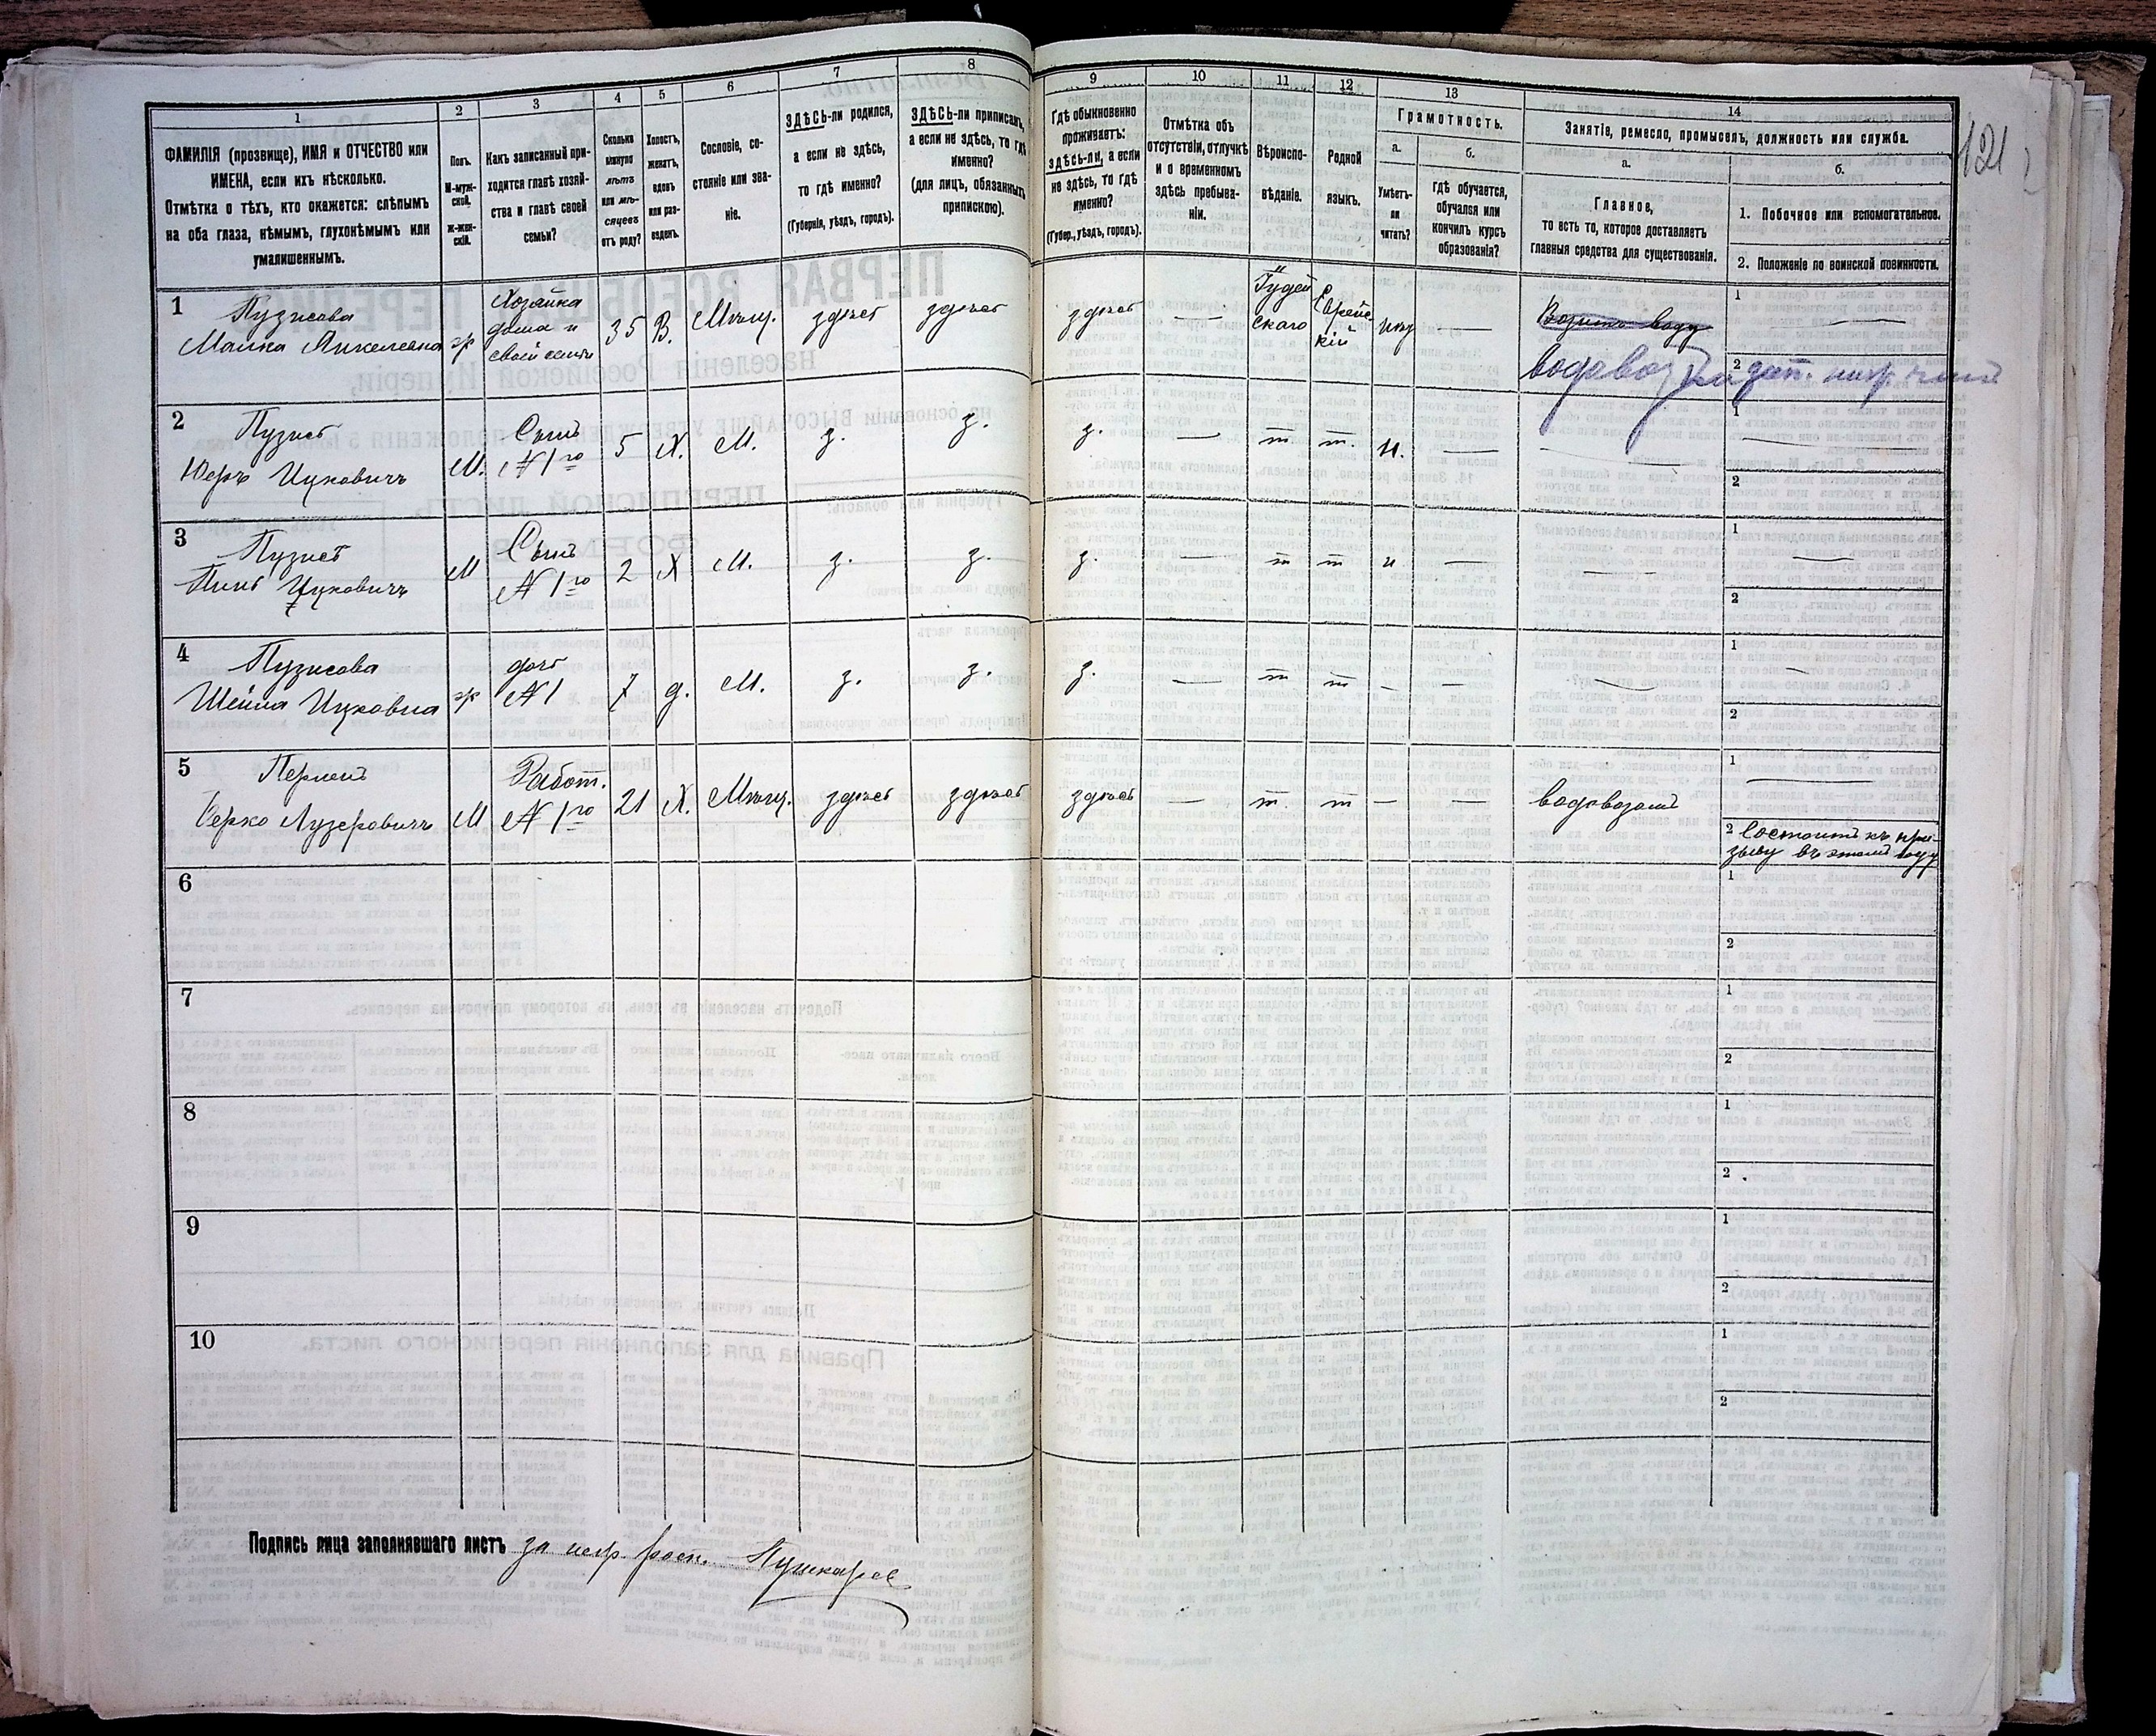 1
2
3
4
5
6
7
8
9
10
11
12
13
14
ФАМИЛІЯ (прозвище), ИМЯ и ОТЧЕСТВО или
ИМЕНА, если ихъ нѣсколько.
Отмѣтка о тѣхъ, кто окажется: слѣпымъ
на оба глаза, нѣмымъ, глухонѣмымъ или
умалишеннымъ.
Полъ.
М-муж-
ской,
ж-жен-
скій.
Какъ записанный при-
ходится главѣ хозяй-
ства и главѣ своей
семьи?
Сколько
минуло
лѣтъ
или мѣ-
сяцевъ
отъ роду?
Холостъ,
женатъ,
вдовъ
или раз-
веденъ.
Сословіе, со-
стояніе или зва-
ніе.
ЗДѢСЬ-ли родился,
а если не здѣсь,
то гдѣ именно?
(Губернія, уѣздъ, городъ).
ЗДѢСЬ-ли приписанъ,
а если не здѣсь, то гдѣ
именно?
(для лицъ, обязанныхъ
припискою).
Гдѣ обыкновенно
проживаетъ:
здѣсь-ли, а если
не здѣсь, то гдѣ
именно?
(Губер., уѣздъ, городъ).
Отмѣтка объ
отсутствіи, отлучкѣ
и о временномъ
здѣсь пребыва-
ніи.
Вѣроиспо-
вѣданіе.
Родной
языкъ.
Грамотность.
а.
Умѣетъ-
ли
читать?
б.
Гдѣ обучается,
обучался или
кончилъ курсъ
образованія?
Занятіе, ремесло, промыселъ, должность или служба.
а.
Главное,
то есть то, которое доставляетъ
главныя средства для существованія.
б.
1. Побочное или вспомогательное.
2. Положеніе по воинской повинности.
121
1
Пузисова
Малка Янкелевна
Хозяйка
дома и
своей семьи
35
В.
Мѣщ.
здѣсь
здѣсь
здѣсь
—
Іудей
скаго
Еврейс
кій
—
Возитъ воду
водовоз
1
—
2
2
Пузисъ
Ицковичъ
М.
Сынъ
№ 1го
5
Х.
М.
з.
з.
з.
—
т
т.
н.
—
—
1
—
2
3
Пузисъ
Ицковичъ
М
Сынъ
№ 1го
2
Х
М.
з.
з.
з.
—
т
т
н.
—
—
1
—
2
4
Пузисова
Шейна Ицковна
дочь
№ 1
7
д.
М.
з.
з.
з.
—
т
т
—
—
—
1
—
2
5
Берко Лузеровичъ
М
Работ.
№ 1го
21
Х.
Мѣщ.
здѣсь
здѣсь
здѣсь
—
т.
т
—
—
водовозомъ
1
—
2 Состоитъ къ при-
зыву въ этомъ году
6
1
2
7
1
2
8
1
2
9
1
2
10
1
2
Подпись лица заполнявшаго листъ за негр. росп. Пушкарев